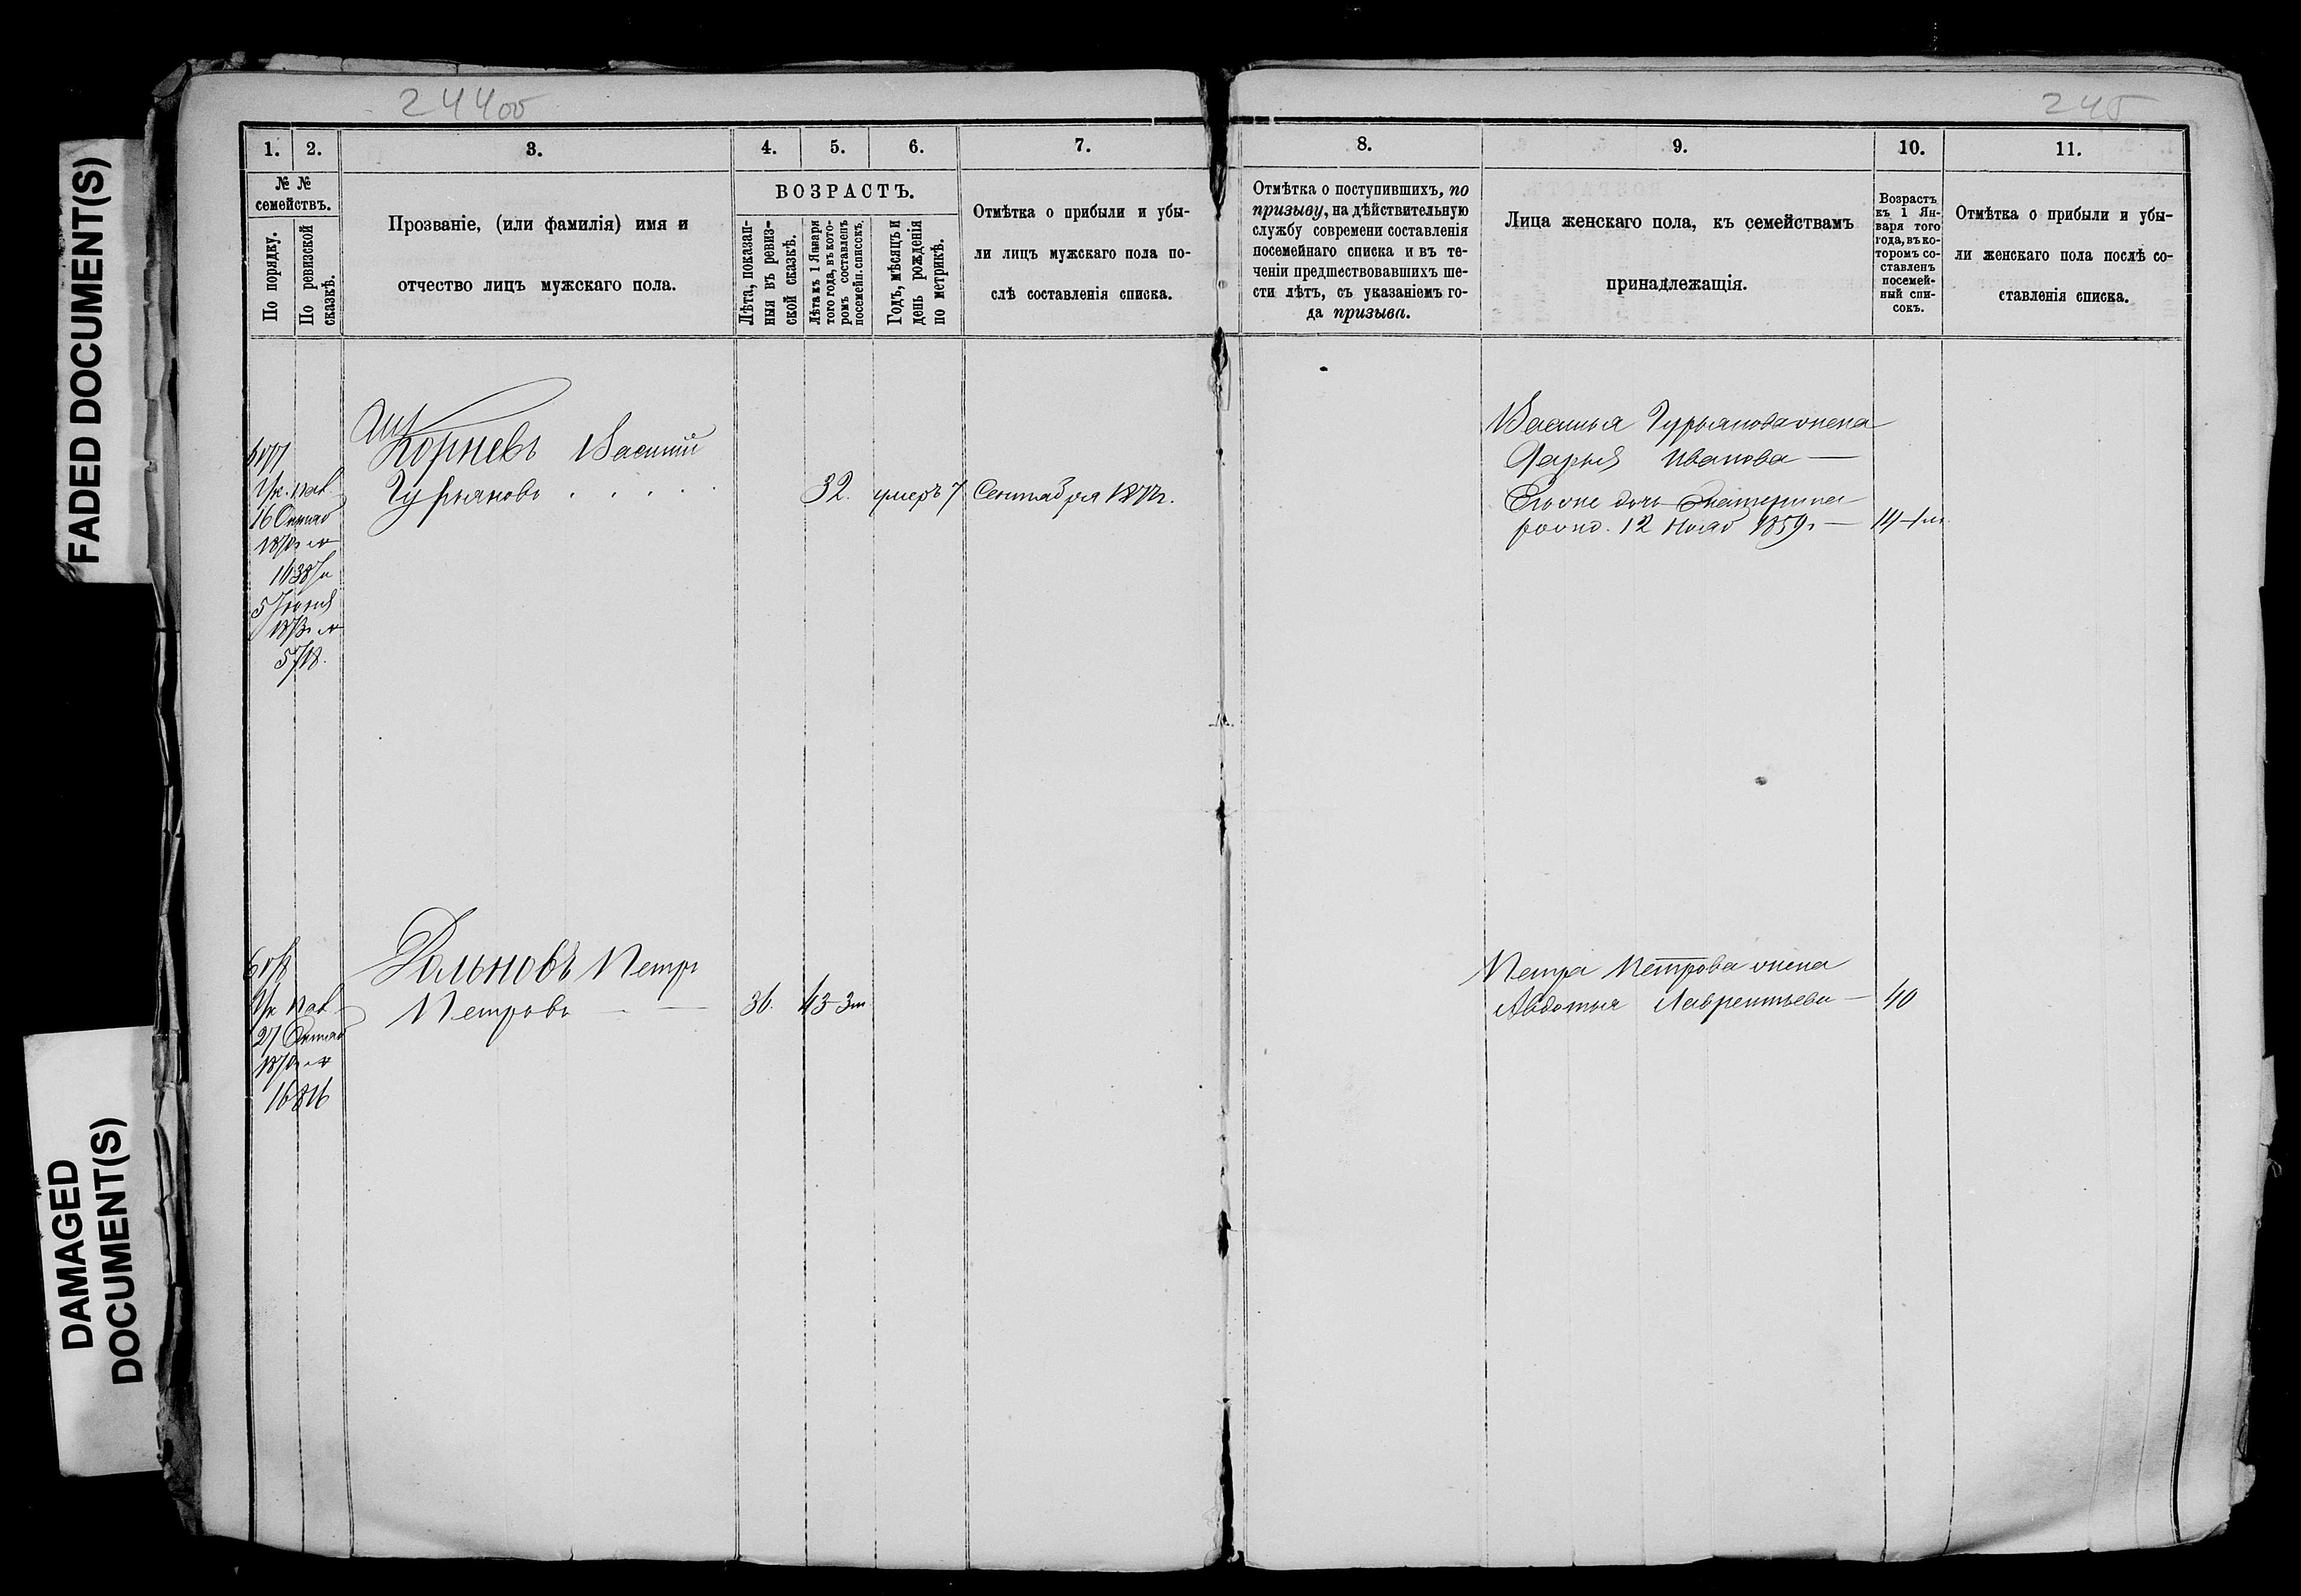 FADED DOCUMENT(S)
DAMAGED
DOCUMENT(S)
244об
245
1.
2.
3.
4.
5.
6.
7.
8.
9.
10.
11.
№ №
семействъ.
По порядку.
По ревизской
сказкѣ.
Прозваніе, (или фамилія) имя и
отчество лицъ мужскаго пола.
ВОЗРАСТЪ.
Лѣта, показан-
ныя въ ревиз-
ской сказкѣ.
Лѣта къ 1 Января
того года, въ кото-
ромъ составленъ
посемейн. списокъ.
Годъ, мѣсяцъ и
день рожденія
по метрикѣ.
Отмѣтка о прибыли и убы-
ли лицъ мужскаго пола по-
слѣ составленія списка.
Отмѣтка о поступившихъ, по
призыву, на дѣйствительную
службу современи составленія
посемейнаго списка и въ те-
ченіи предшествовавшихъ ше-
сти лѣтъ, съ указаніемъ го-
да призыва.
Лица женскаго пола, къ семействамъ
принадлежащія.
Возрастъ
къ 1 Ян-
варя того
года, въ ко-
торомъ со-
ставленъ
посемей-
ный спи-
сокъ.
Отмѣтка о прибыли и убы-
ли женскаго пола послѣ со-
ставленія списка.
Корневъ Василій
Гурьяновъ
32. умеръ 7 Сентября
16
5 Іюня
5718.
Василья Гурьянова жена
Дарья Иванова —
Его же дочь Екатерина
рожд. 12 Нояб 1859г —
Дольновъ Петръ
Петровъ — —
36. 43-3м
27
16816
Петра Петрова жена
Авдотья Лаврентьева — 40